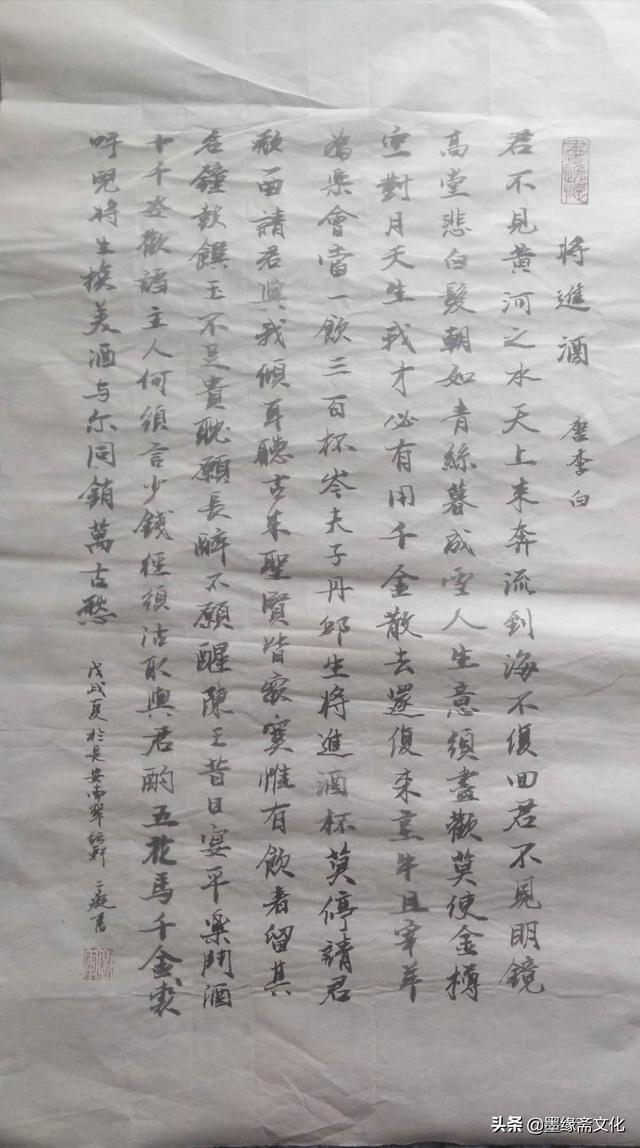 將進酒 唐李白
君不見黄河之水天上来奔流到海不復回君不見明鏡
高堂悲白髮朝如青絲暮成雪人生意須盡歡莫使金樽
空對月天生我才必有用千金散去還復来烹牛且宰羊
為樂會當一飲三百杯岑夫子丹邱生将進酒杯莫停請君
歌曲請君與我傾耳聽古来聖賢皆寂寞惟有飲者留其
名鐘鼓饌玉不足貴耽願長醉不願醒陳王昔日宴平樂鬥酒
十千恣歡謔主人何須言少錢經須沽取與君酌五花馬千金裘
呼兒将出换美酒与尔同銷萬古愁
戊戌夏於長安南翠軒 癡書
头条 @墨缘斋文化